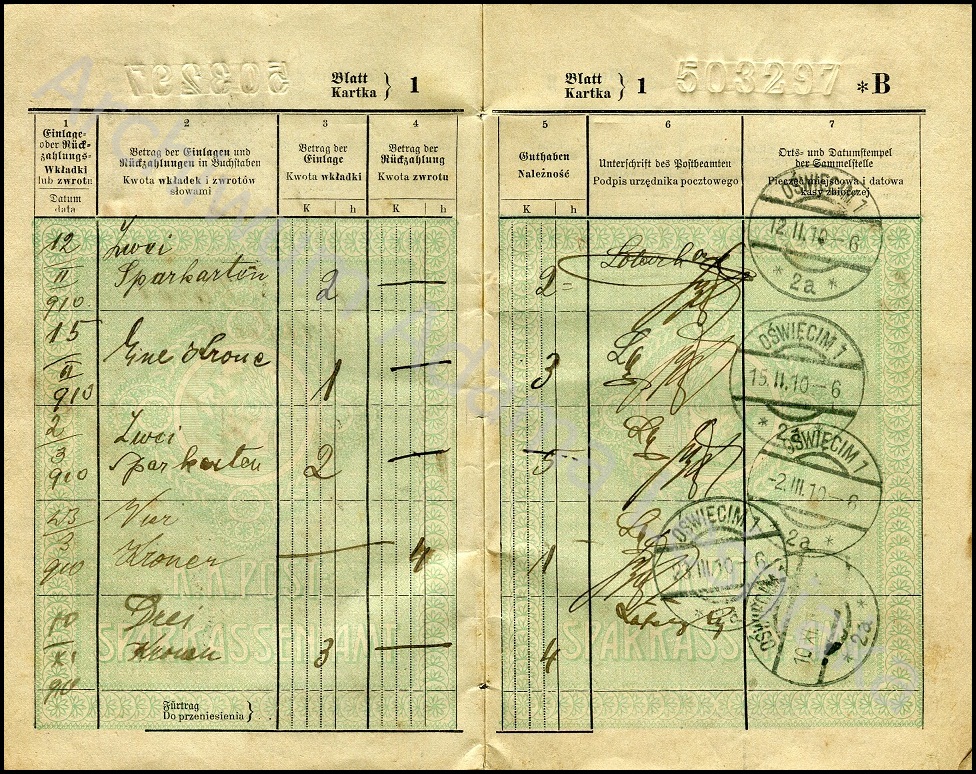 503297
Blatt
Kartka } 1
Blatt
Kartka } 1
503297
*B
1
Einlage-
oder Rück-
zahlungs-
Wkładki
lub zwrotu
Datum
data
2
Betrag der Einlagen und
Rückzahlungen in Buchstaben
Kwota wkładek i zwrotów
słowami
3
Betrag der
Einlage
Kwota wkładki
K h
4
Betrag der
Rückzahlung
Kwota zwrotu
K h
5
Guthaben
Należność
K h
6
Unterschrift des Postbeamten
Podpis urzędnika pocztowego
7
Orts- und Datumstempel
der Sammelstelle
Pieczęć miejscowa i datowa
kasy zbiorczej
12
II
910
Zwei
Sparkarten
2
—
2
OŚWIĘCIM 1
12.II.10—6
* 2a *
15
II
910
Eine Krone
1
—
3
OŚWIĘCIM 1
15.II.10—6
* 2a
2
3
910
Zwei
Sparkarten
2
—
5
OŚWIĘCIM 1
-2.III.10—6
2a *
23
3
910
Vier
Kronen
—
4
1
OŚWIĘCIM 1
23.III.10—6
10
XI
910
Drei
Kronen
3
—
4
OŚWIĘCIM
10.XI
* 2a *
K.K. POST
SPARKASSEN-AMT
SPARKASSEN-AMT
Fürtrag
Do przeniesienia }
Archiwum Adama